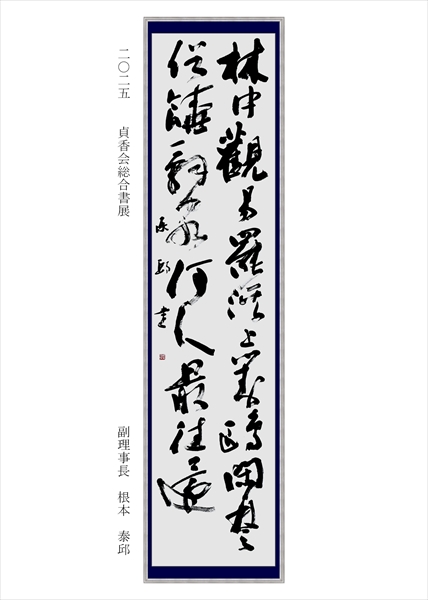 林中觀易罷溪上對鷗閑楚
俗饒詞客何人最往還
泰邱書
二〇二五 貞香会総合書展
副理事長 根本 泰邱